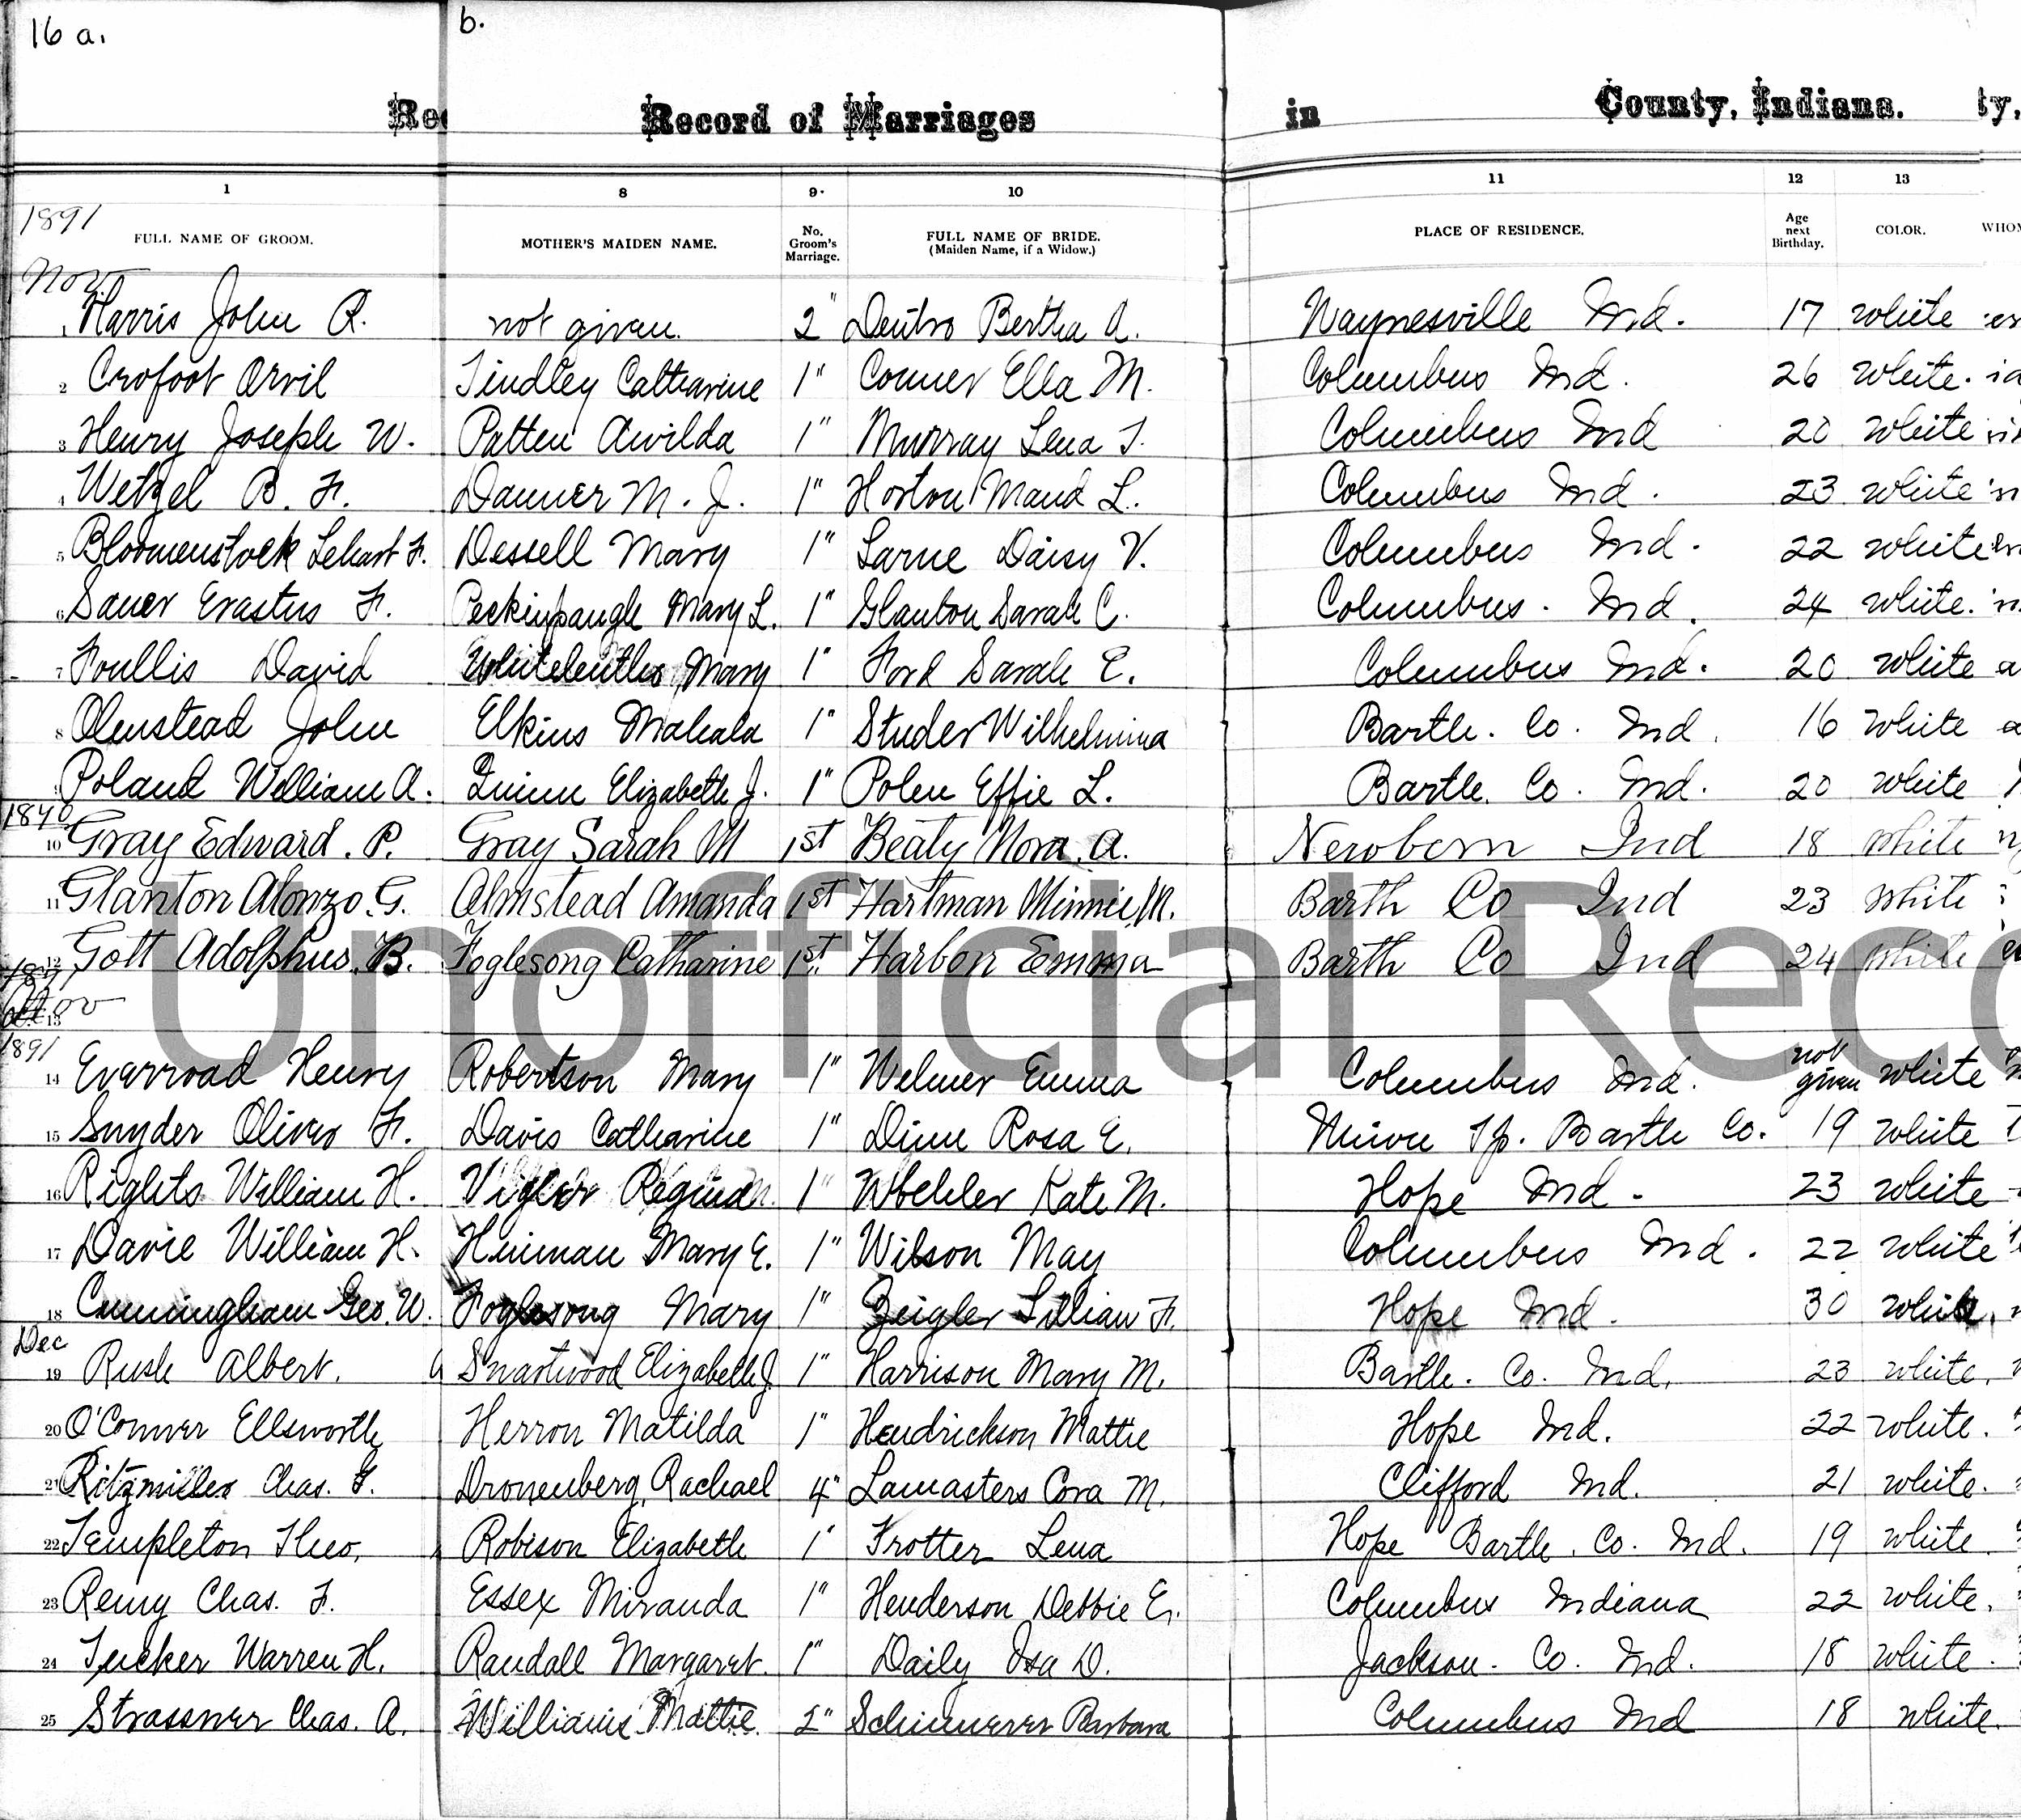 16 a. b.
Rec Record of Marriages in County, Indiana. ty,
1 8 9. 10 11 12 13
1891
FULL NAME OF GROOM. MOTHER'S MAIDEN NAME. No. Groom's Marriage. FULL NAME OF BRIDE. (Maiden Name, if a Widow.) PLACE OF RESIDENCE. Age next Birthday. COLOR. WHOM
Nov
1 Harris John R. not given. 2" Deitro Bertha A. Waynesville Ind. 17 white
2 Crofoot Orvil Tindley Catharine 1" Conner Ella M. Columbus Ind. 26 white.
3 Henry Joseph W. Patten Awilda 1" Murray Lena T. Columbus Ind 20 white
4 Wetzel B. F. Danner M. J. 1" Horton Maud L. Columbus Ind. 23 white
5 Bloomenstock Lehart F. Dessell Mary 1" Larue Daisy V. Columbus Ind. 22 white
6 Sauer Erastus F. Peckinpaugh Mary L. 1" Glanton Sarah C. Columbus. Ind. 24 white.
7 Foullis David Mary 1" Ford Sarah E. Columbus Ind. 20 white
8 Olmstead John Elkins Mahala 1" Studer Wilhelmina Barth. Co. Ind. 16 white
9 Poland William A. Quinn Elizabeth J. 1" Polen Effie L. Barth. Co. Ind. 20 white
1890
10 Gray Edward. P. Gray Sarah M 1st Beaty Nora. A. Newbern Ind 18 White
11 Glanton Alonzo. G. Almstead Amanda 1st Hartman Minnie M. Barth Co Ind 23 White
12 Gott Adolphus. B. Foglesong Catharine 1st. Harbon Emma Barth Co Ind 24 White
1891
Nov
13
Unofficial Reco
1891
14 Everroad Henry Robertson Mary 1" Welmer Emma Columbus Ind. not given white
15 Snyder Oliver F. Davis Catharine 1" Dinn Rosa E. Tp. Barth Co. 19 white
16 Rights William H. Vigler Regina 1" Woehler Kate M. Hope Ind - 23 white
17 Davie William H. Hinman Mary E. 1" Wilson May Columbus Ind. 22 white
18 Cunningham Geo. W. Foglesong Mary 1" Zeigler Lillian F. Hope Ind. 30 white.
Dec
19 Rush Albert. Swartwood Elizabeth J. 1" Harrison Mary M. Barth. Co. Ind. 23 white.
20 O'Conner Ellsworth Herron Matilda 1" Hendrickson Mattie Hope Ind. 22 white.
21 Ritzmiller Chas. F. Dronenberg Rachael 4" Lamasters Cora M. Clifford Ind. 21 white.
22 Templeton Theo. Robison Elizabeth 1" Trotter Lena Hope Barth. Co. Ind. 19 white.
23 Remy Chas. F. Essex Miranda 1" Henderson Debbie E. Columbus Indiana 22 white.
24 Tucker Warren H. Randall Margaret. 1" Daily Isa D. Jackson. Co. Ind. 18 white.
25 Strassner Chas. A. Williams Mattie. 2" Schinnerer Barbara Columbus Ind 18 white.